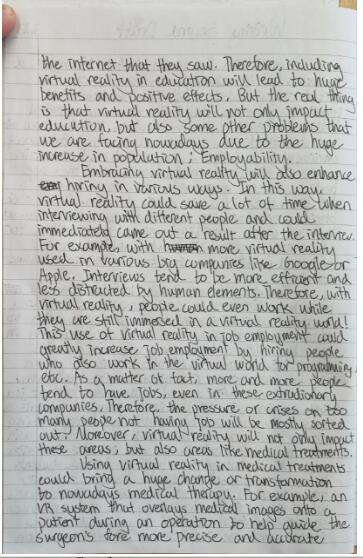 the internet that they saw. Therefore, including
virtual reality in education will lead to huge
benefits and positive effects. But the real thing
is that virtual reality will not only impact
education, but also some other problems that
we are facing nowadays due to the huge
increase in population; Employability.
Embracing virtual reality will also enhance
hiring in various ways. In this way,
virtual reality could save a lot of time when
interviewing with different people and could
immediately came out a result after the interview.
For example, with more virtual reality
used in various big companies like Google or
Apple. Interviews tend to be more efficient and
less distracted by human elements. Therefore, with
virtual reality, people could even work while
they are still immersed in a virtual reality world!
This use of virtual reality in job employment could
greatly increase job employment by hiring people
who also work in the virtual world for programming
etc. As a matter of fact, more and more people
tend to have jobs, even in these extradionary
companies. Therefore, the pressure or crises on too
many people not having job will be mostly sorted
out. Moreover, virtual reality will not only impact
these areas, but also areas like medical treatments.
Using virtual reality in medical treatments
could bring a huge change or transformation
to nowadays medical therapy. For example, an
VR system that overlays medical images onto a
patient during an operation to help guide the
surgeons more precise and accurate